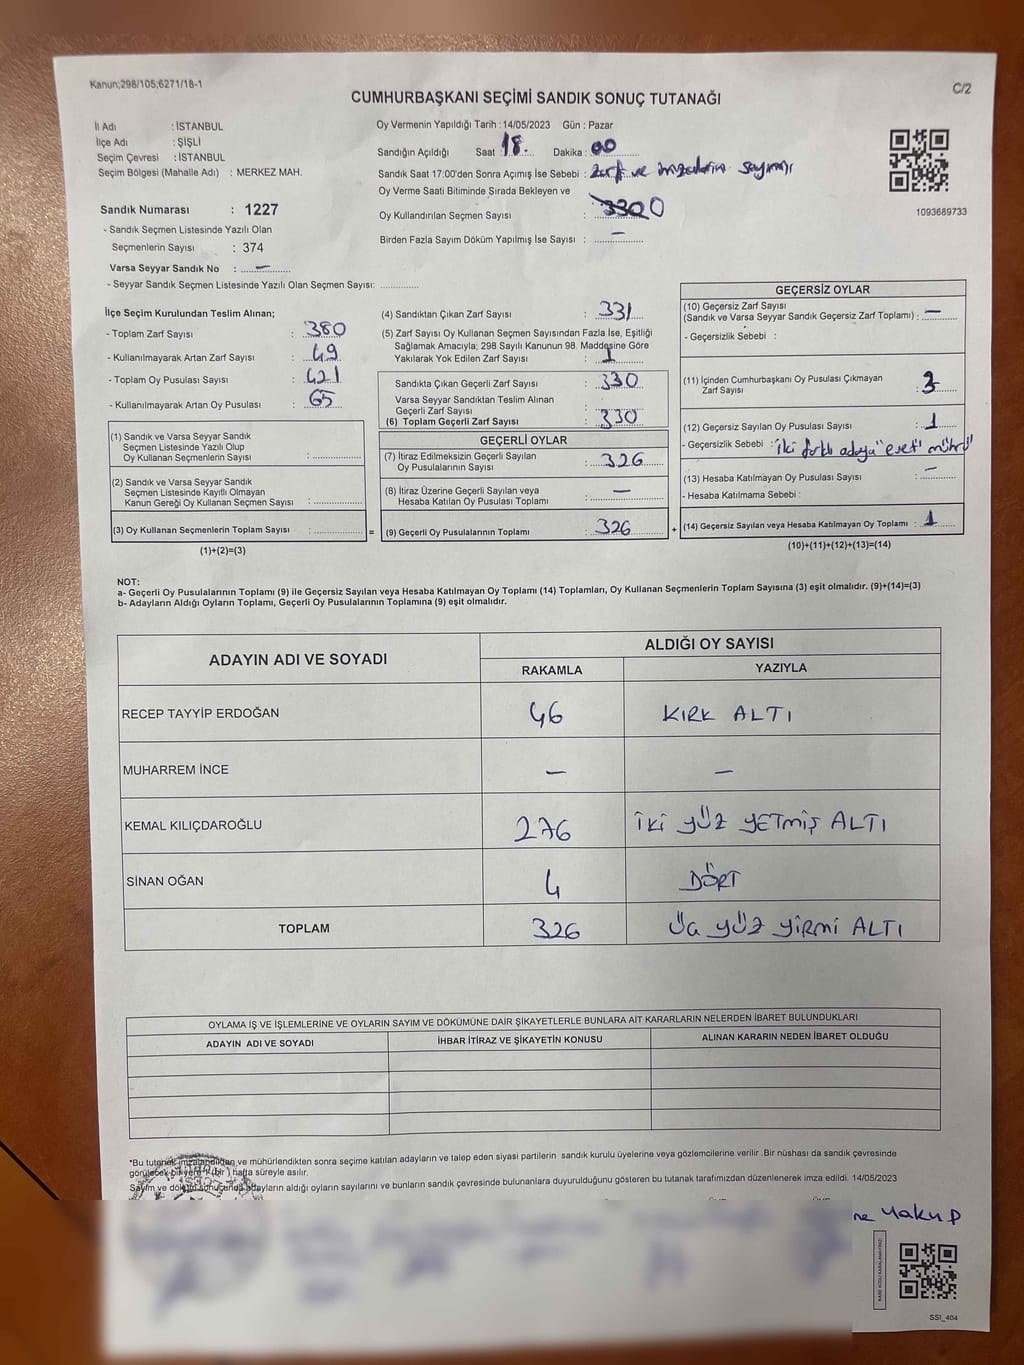 Kanun;298/105;6271/18-1
C/2
CUMHURBAŞKANI SEÇİMİ SANDIK SONUÇ TUTANAĞI
İl Adı : İSTANBUL
İlçe Adı : ŞİŞLİ
Seçim Çevresi : İSTANBUL
Seçim Bölgesi (Mahalle Adı) : MERKEZ MAH.
Sandık Numarası : 1227
- Sandık Seçmen Listesinde Yazılı Olan
Seçmenlerin Sayısı : 374
Varsa Seyyar Sandık No : —
- Seyyar Sandık Seçmen Listesinde Yazılı Olan Seçmen Sayısı: ..............
Oy Vermenin Yapıldığı Tarih : 14/05/2023 Gün : Pazar
Sandığın Açıldığı Saat 18. Dakika : 00
Sandık Saat 17:00'den Sonra Açımış İse Sebebi : Zarf ve imzaların sayımı
Oy Verme Saati Bitiminde Sırada Bekleyen ve
Oy Kullandırılan Seçmen Sayısı : 0
Birden Fazla Sayım Döküm Yapılmış İse Sayısı : —
1093689733
İlçe Seçim Kurulundan Teslim Alınan;
- Toplam Zarf Sayısı : 380
- Kullanılmayarak Artan Zarf Sayısı : 49
- Toplam Oy Pusulası Sayısı : 421
- Kullanılmayarak Artan Oy Pusulası : 65
(1) Sandık ve Varsa Seyyar Sandık
Seçmen Listesinde Yazılı Olup
Oy Kullanan Seçmenlerin Sayısı : ..............
(2) Sandık ve Varsa Seyyar Sandık
Seçmen Listesinde Kayıtlı Olmayan
Kanun Gereği Oy Kullanan Seçmen Sayısı : ..............
(3) Oy Kullanan Seçmenlerin Toplam Sayısı : .............. =
(1)+(2)=(3)
(4) Sandıktan Çıkan Zarf Sayısı : 331
(5) Zarf Sayısı Oy Kullanan Seçmen Sayısından Fazla İse, Eşitliği
Sağlamak Amacıyla; 298 Sayılı Kanunun 98. Maddesine Göre
Yakılarak Yok Edilen Zarf Sayısı : 1
Sandıkta Çıkan Geçerli Zarf Sayısı : 330
Varsa Seyyar Sandıktan Teslim Alınan
Geçerli Zarf Sayısı :
(6) Toplam Geçerli Zarf Sayısı : 330
GEÇERLİ OYLAR
(7) İtiraz Edilmeksizin Geçerli Sayılan
Oy Pusulalarının Sayısı : 326
(8) İtiraz Üzerine Geçerli Sayılan veya
Hesaba Katılan Oy Pusulası Toplamı : —
(9) Geçerli Oy Pusulalarının Toplamı : 326 +
GEÇERSİZ OYLAR
(10) Geçersiz Zarf Sayısı
(Sandık ve Varsa Seyyar Sandık Geçersiz Zarf Toplamı) : —
- Geçersizlik Sebebi :
(11) İçinden Cumhurbaşkanı Oy Pusulası Çıkmayan
Zarf Sayısı : 3
(12) Geçersiz Sayılan Oy Pusulası Sayısı : 1
- Geçersizlik Sebebi : iki farklı adaya "evet" mührü
(13) Hesaba Katılmayan Oy Pusulası Sayısı : —
- Hesaba Katılmama Sebebi :
(14) Geçersiz Sayılan veya Hesaba Katılmayan Oy Toplamı : 1
(10)+(11)+(12)+(13)=(14)
NOT:
a- Geçerli Oy Pusulalarının Toplamı (9) ile Geçersiz Sayılan veya Hesaba Katılmayan Oy Toplamı (14) Toplamları, Oy Kullanan Seçmenlerin Toplam Sayısına (3) eşit olmalıdır. (9)+(14)=(3)
b- Adayların Aldığı Oyların Toplamı, Geçerli Oy Pusulalarının Toplamına (9) eşit olmalıdır.
ADAYIN ADI VE SOYADI
ALDIĞI OY SAYISI
RAKAMLA YAZIYLA
RECEP TAYYİP ERDOĞAN 46 KIRK ALTI
MUHARREM İNCE — —
KEMAL KILIÇDAROĞLU 276 İKİ YÜZ YETMİŞ ALTI
SİNAN OĞAN 4 DÖRT
TOPLAM 326 ÜÇ YÜZ YİRMİ ALTI
OYLAMA İŞ VE İŞLEMLERİNE VE OYLARIN SAYIM VE DÖKÜMÜNE DAİR ŞİKAYETLERLE BUNLARA AİT KARARLARIN NELERDEN İBARET BULUNDUKLARI
ADAYIN ADI VE SOYADI İHBAR İTİRAZ VE ŞİKAYETİN KONUSU ALINAN KARARIN NEDEN İBARET OLDUĞU
*Bu tutanak imzalandıktan ve mühürlendikten sonra seçime katılan adayların ve talep eden siyasi partilerin sandık kurulu üyelerine veya gözlemcilerine verilir .Bir nüshası da sandık çevresinde
görülecek bir yere 1 (bir ) hafta süreyle asılır.
Sayım ve döküm sonucunda adayların aldığı oyların sayılarını ve bunların sandık çevresinde bulunanlara duyurulduğunu gösteren bu tutanak tarafımızdan düzenlenerek imza edildi. 14/05/2023
ne Yakup
SSI_404